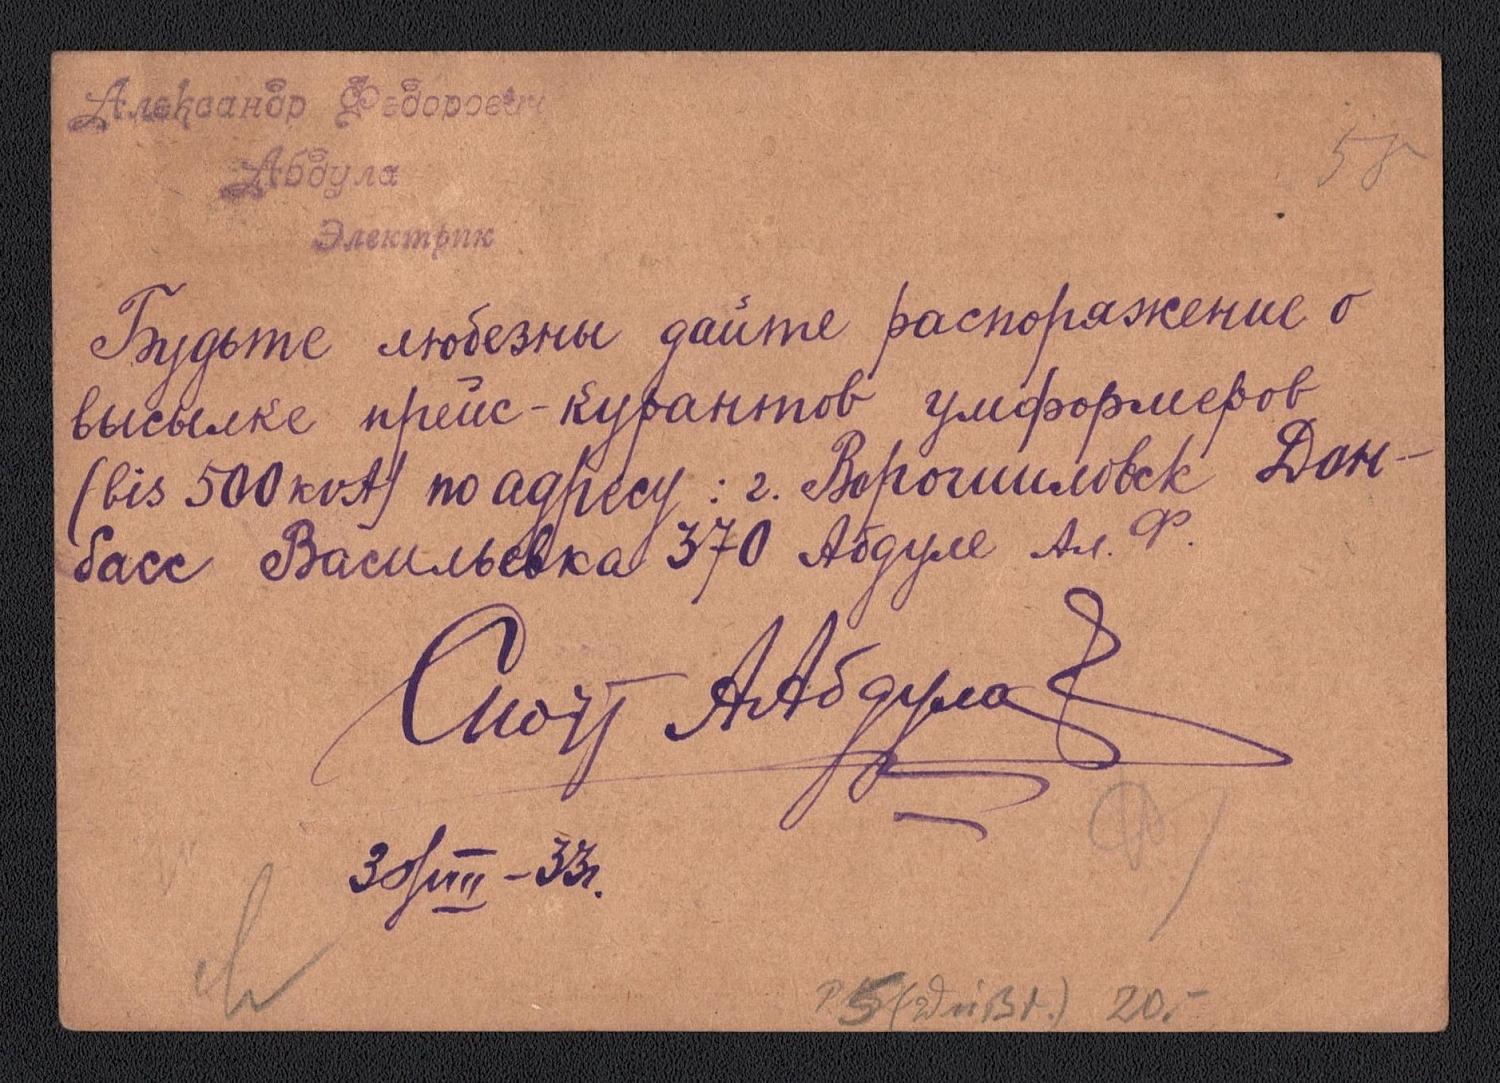 Александр Федорович
Абдула
Электрик
Будьте любезны дайте распоряжение о
высылке прейс-курантов умформеров
(bis 500 kvA) по адресу: г. Ворошиловск Дон-
басс Васильевка 370 Абдуле Ал. Ф.
ААбдула
30/VIII-33г.
5 20.-